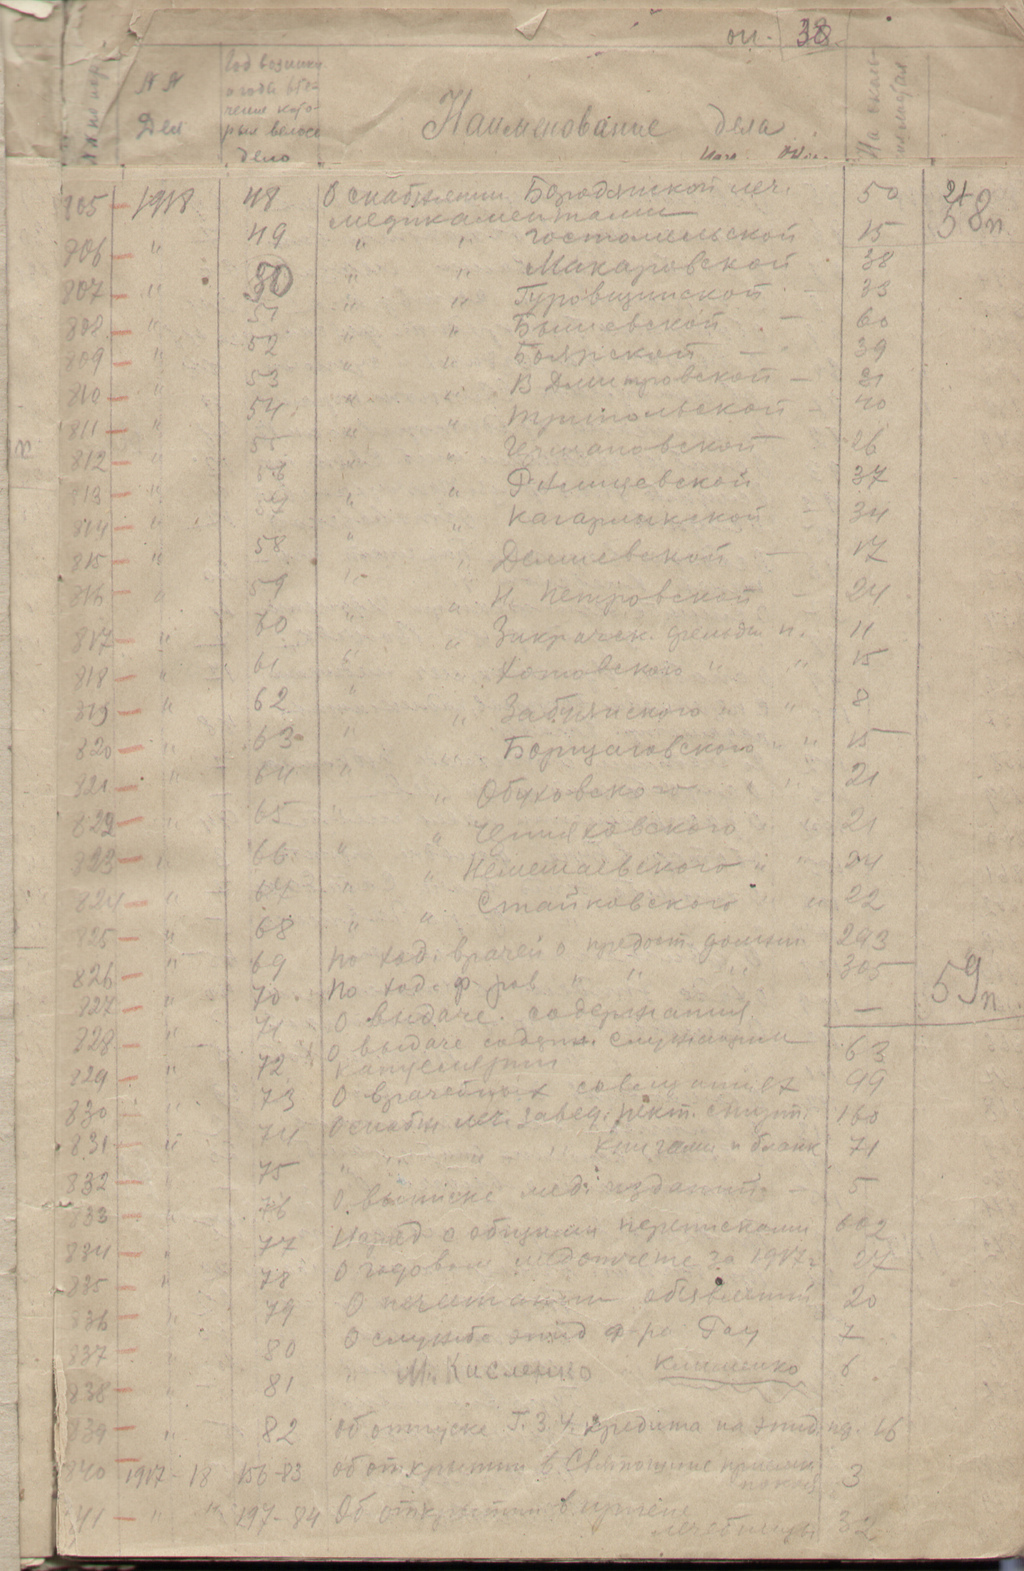 оп. 38
№№ по пор.
№№ Дел
Год возникн
Наименование дела
На скольк. листах
805 1918 48 О снабжении Бородянской леч. 50
медикаментами
806 " 49 " " Гостомельской 15
58п
807 " 50 " " Макаровской 38
808 " 51 " " Гуровщинской 33
809 " 52 " " Бышевской 60
810 " 53 " " Боярской 39
811 " 54 " " В Дмитровской 21
812 " 55 " " Трипольской 40
813 " 56 " " Германовской 26
814 " 57 " " Ржищевской 37
815 " 58 " " Кагарлыкской 34
816 " 59 " " Демиевской 17
817 " 60 " " Н. Петровской 24
818 " 61 " " Закревск. фельдш. п. 11
819 " 62 " Хотовского " " 15
820 " 63 " " Забуянского " " 8
821 " 64 " Борщаговского " " 15
822 " 65 " Обуховского " " 21
823 " 66 " " Черняховского " " 21
824 " 67 " " Немешаевского " " 24
825 " 68 " " Стайковского " 22
826 " 69 По ход. врачей о предост. должн. 293
827 " 70 По ход. ф-ров " " " 305
59п
828 " 71 О выдаче содержания —
829 " 72 О выдаче содерж. служащим 63
канцелярии
830 " 73 О врачебных совещаниях 99
831 " 74 О снабж. леч. завед. рект. спирт. 160
832 75 " " " " книгами и бланк 71
833 " 76 О выписке мед. изданий 5
834 " 77 Наряд с общими переписками 602
835 " 78 О годовом медотчете за 1917 г. 27
836 " 79 О печатании объявлений 20
837 " 80 О службе эпид ф-ра Гау 7
838 " 81 " М. Кисленко Клименко 6
839 " 82 Об отпуске Г.З.У. кредита на эпид. 16
840 1917-18 156-83 Об открытии в Святошине приемн. 3
покоя
841 " " 197-84 Об открытии в 32
лечебницы